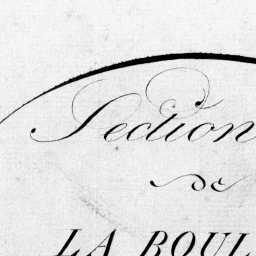 Section
de
LA BOUL